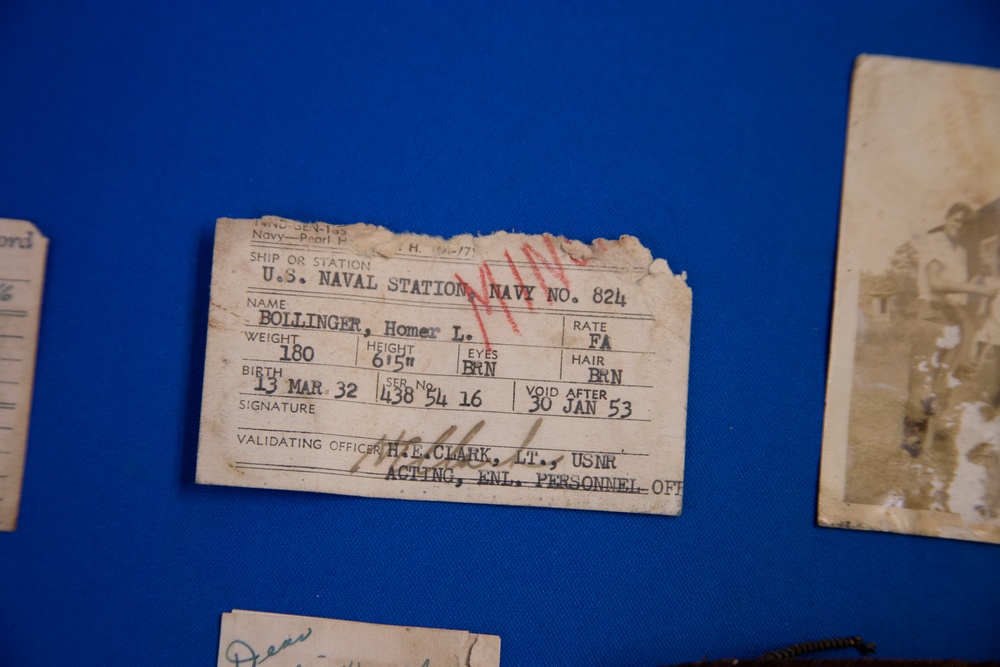 14ND-GEN-135
Navy—Pearl H
SHIP OR STATION
U.S. NAVAL STATION, NAVY NO. 824
NAME
BOLLINGER, Homer L.
RATE
FA
WEIGHT
180
HEIGHT
6'5"
EYES
BRN
HAIR
BRN
BIRTH
13 MAR 32
SER. No.
438 54 16
VOID AFTER
30 JAN 53
SIGNATURE
VALIDATING OFFICER H.E.CLARK, LT., USNR
ACTING, ENL. PERSONNEL OFF
Dear